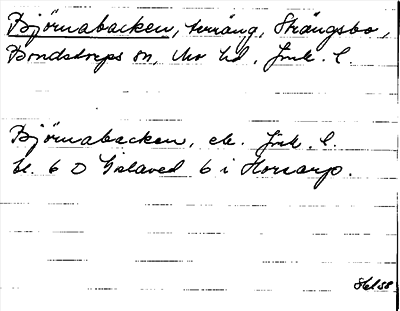 Björnabacken, terräng, Strängsbo,
Bondstorps sn, Mo hd, Jönk. l.
Björnabacken, ek. Jönk. l.
bl. 6 D Gislaved 6 i Horrarp.